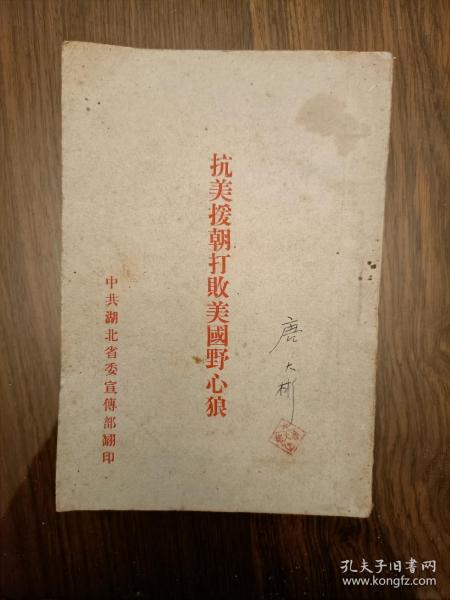 抗美援朝打敗美國野心狼
中共湖北省委宣傳部翻印
唐大彬
孔夫子旧书网
www.kongfz.com